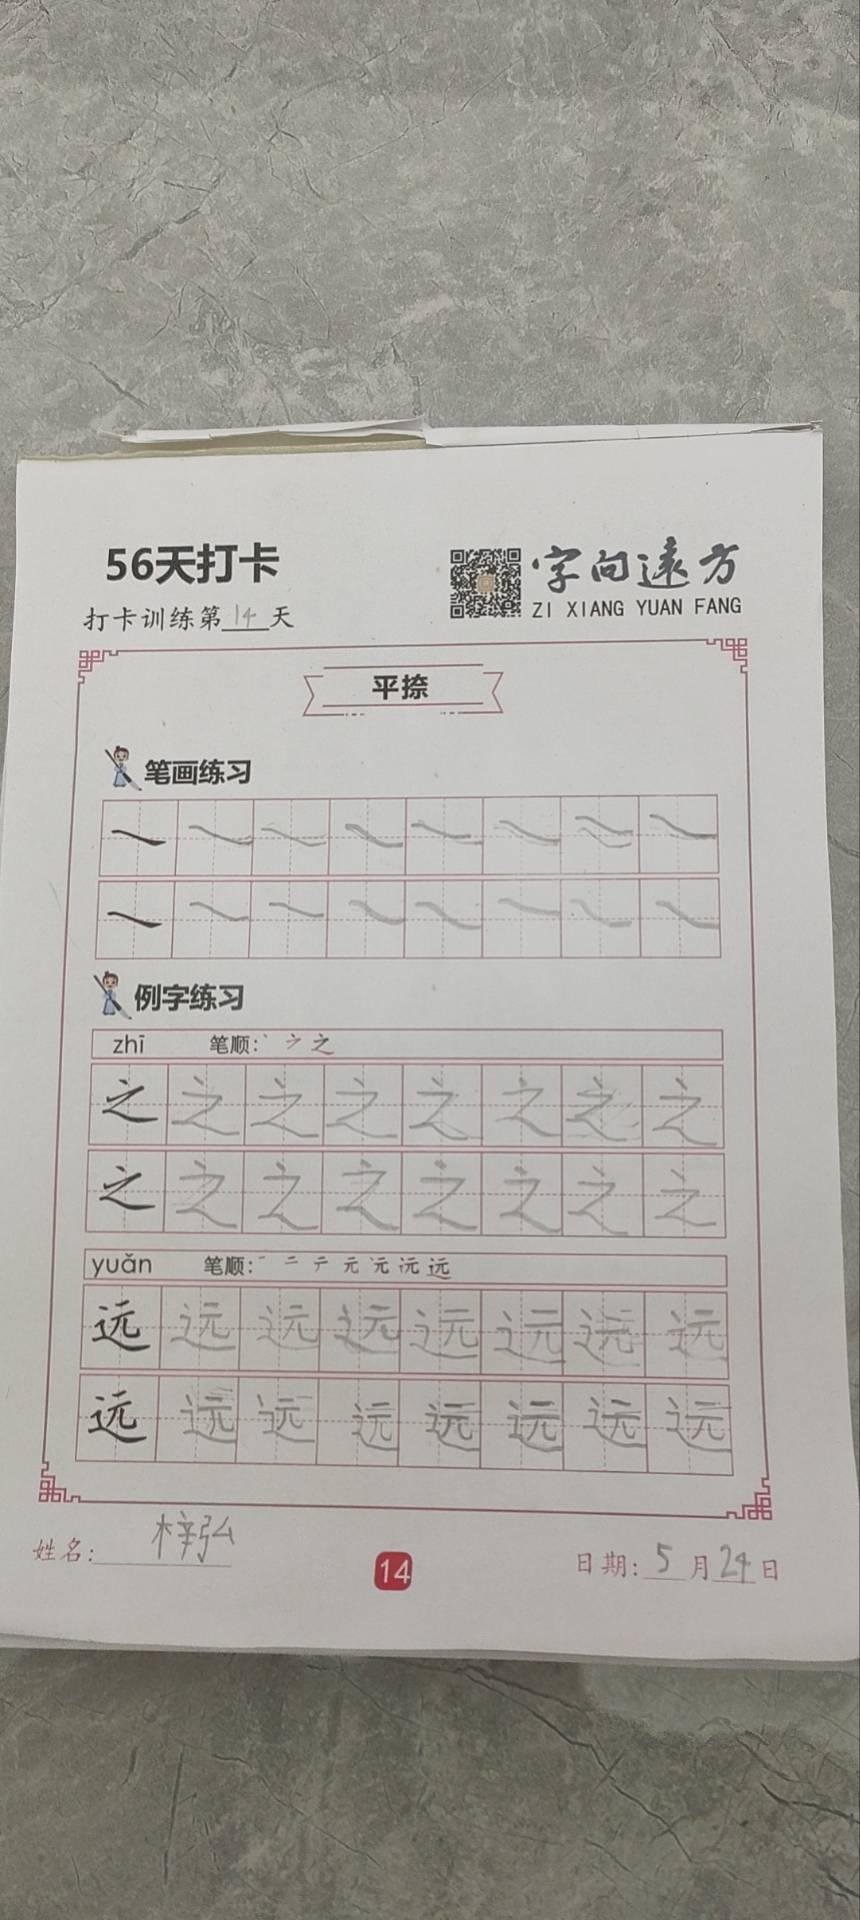 56天打卡
字向遠方
ZI XIANG YUAN FANG
打卡训练第14天
平捺
笔画练习
例字练习
zhī 笔顺:丶 亠 之
之 之 之 之 之 之 之 之
之 之 之 之 之 之 之 之
yuǎn 笔顺:一 二 テ 元 元 沅 远
远 远 远 远 远 远 远 远
远 远 远 远 远 远 远 远
姓名: 梓弘
14
日期: 5 月 24 日